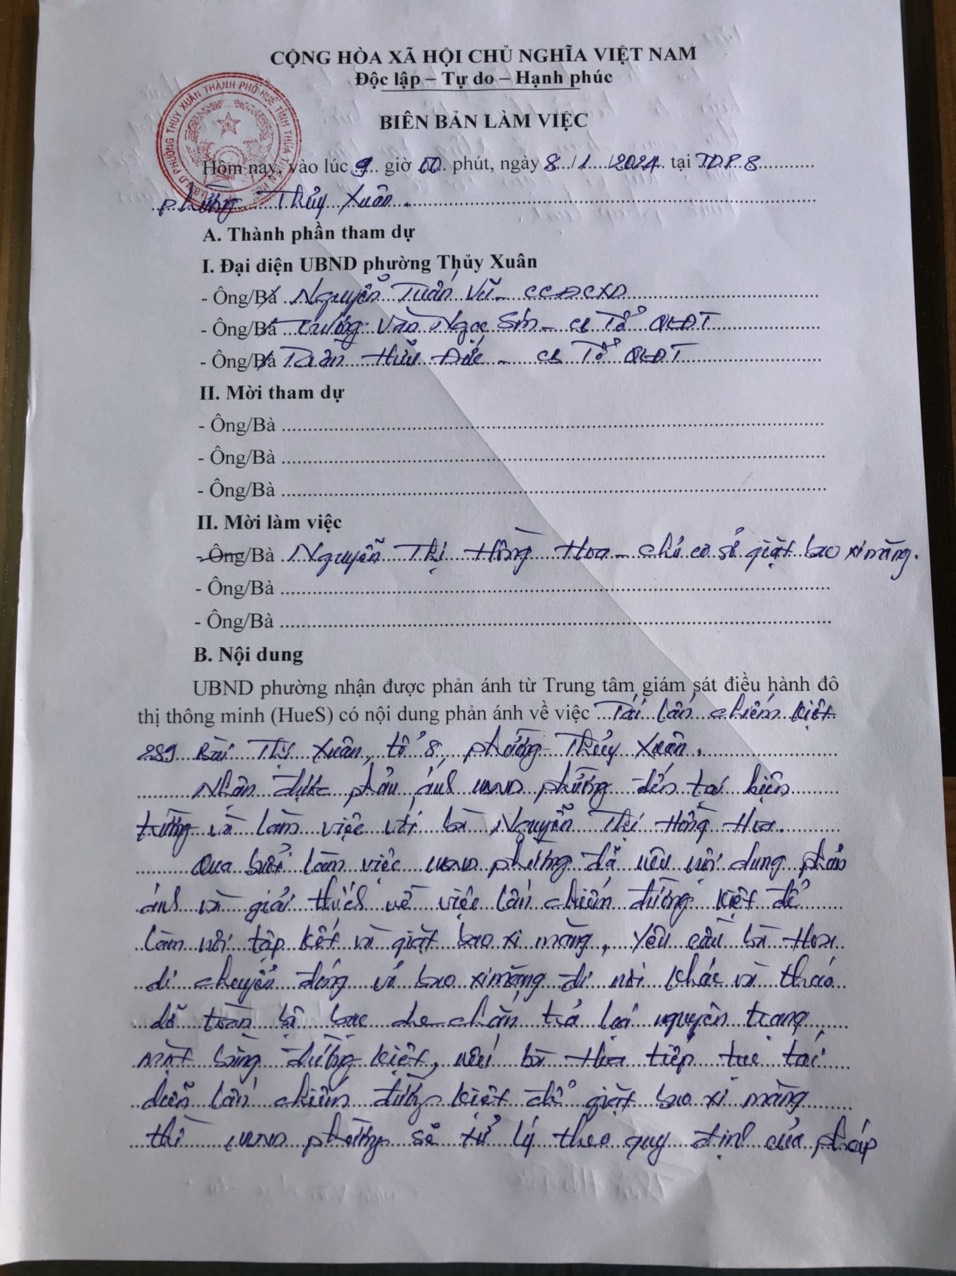 CỘNG HÒA XÃ HỘI CHỦ NGHĨA VIỆT NAM
Độc lập – Tự do – Hạnh phúc
BIÊN BẢN LÀM VIỆC
Hôm nay, vào lúc 9 giờ 00 phút, ngày 8/1/2024 tại TDP 8
phường Thủy Xuân.
A. Thành phần tham dự
I. Đại diện UBND phường Thủy Xuân
- Ông/Bà Nguyễn Tuấn Vũ - CCĐCXD
- Ông/Bà Trương Văn Ngọc Sơn - CB Tổ QLĐT
- Ông/Bà Trần Hữu Đức - CB Tổ QLĐT
II. Mời tham dự
- Ông/Bà
- Ông/Bà
- Ông/Bà
II. Mời làm việc
- Ông/Bà Nguyễn Thị Hồng Hoa - chủ cơ sở giặt bao xi măng.
- Ông/Bà
- Ông/Bà
B. Nội dung
UBND phường nhận được phản ánh từ Trung tâm giám sát điều hành đô
thị thông minh (HueS) có nội dung phản ánh về việc Tái lấn chiếm kiệt
289 Bùi Thị Xuân, tổ 8, phường Thủy Xuân.
Nhận được phản ánh UBND phường đến tại hiện
trường và làm việc với bà Nguyễn Thị Hồng Hoa.
Qua buổi làm việc UBND phường đã nêu nội dung phản
ánh và giải thích về việc lấn chiếm đường kiệt để
làm nơi tập kết và giặt bao xi măng, yêu cầu bà Hoa
di chuyển đống vỏ bao xi măng đi nơi khác và tháo
dỡ toàn bộ bạc che chắn trả lại nguyên trạng
mặt bằng đường kiệt, nếu bà Hoa tiếp tục tái
diễn lấn chiếm đường kiệt để giặt bao xi măng
thì UBND phường sẽ xử lý theo quy định của pháp